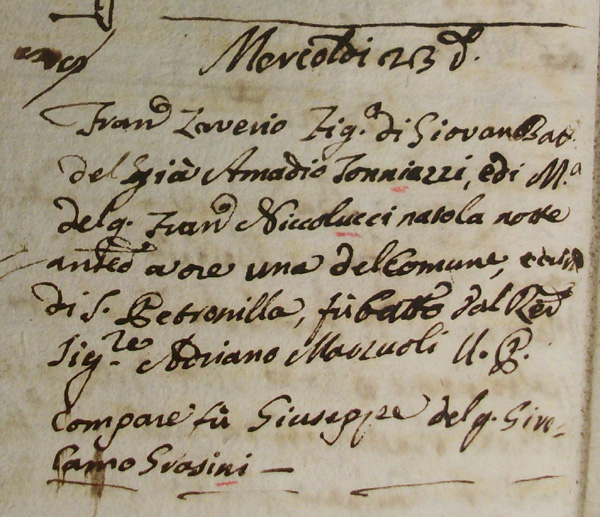 Mercoldi 23 d.º
Franº Zaverio Fig.ª di Giovan Bat.
del già Amadio Tonniazzi, e di M.ª
del q. Franº Niccolucci nato la notte
antedº a ore una del Comune, e cura
di S. Petronilla, fù battº dal Revº
Sig.re Adriano Mazzuoli V. P.
Compare fù Giuseppe del q. Giro-
lamo Grasini —